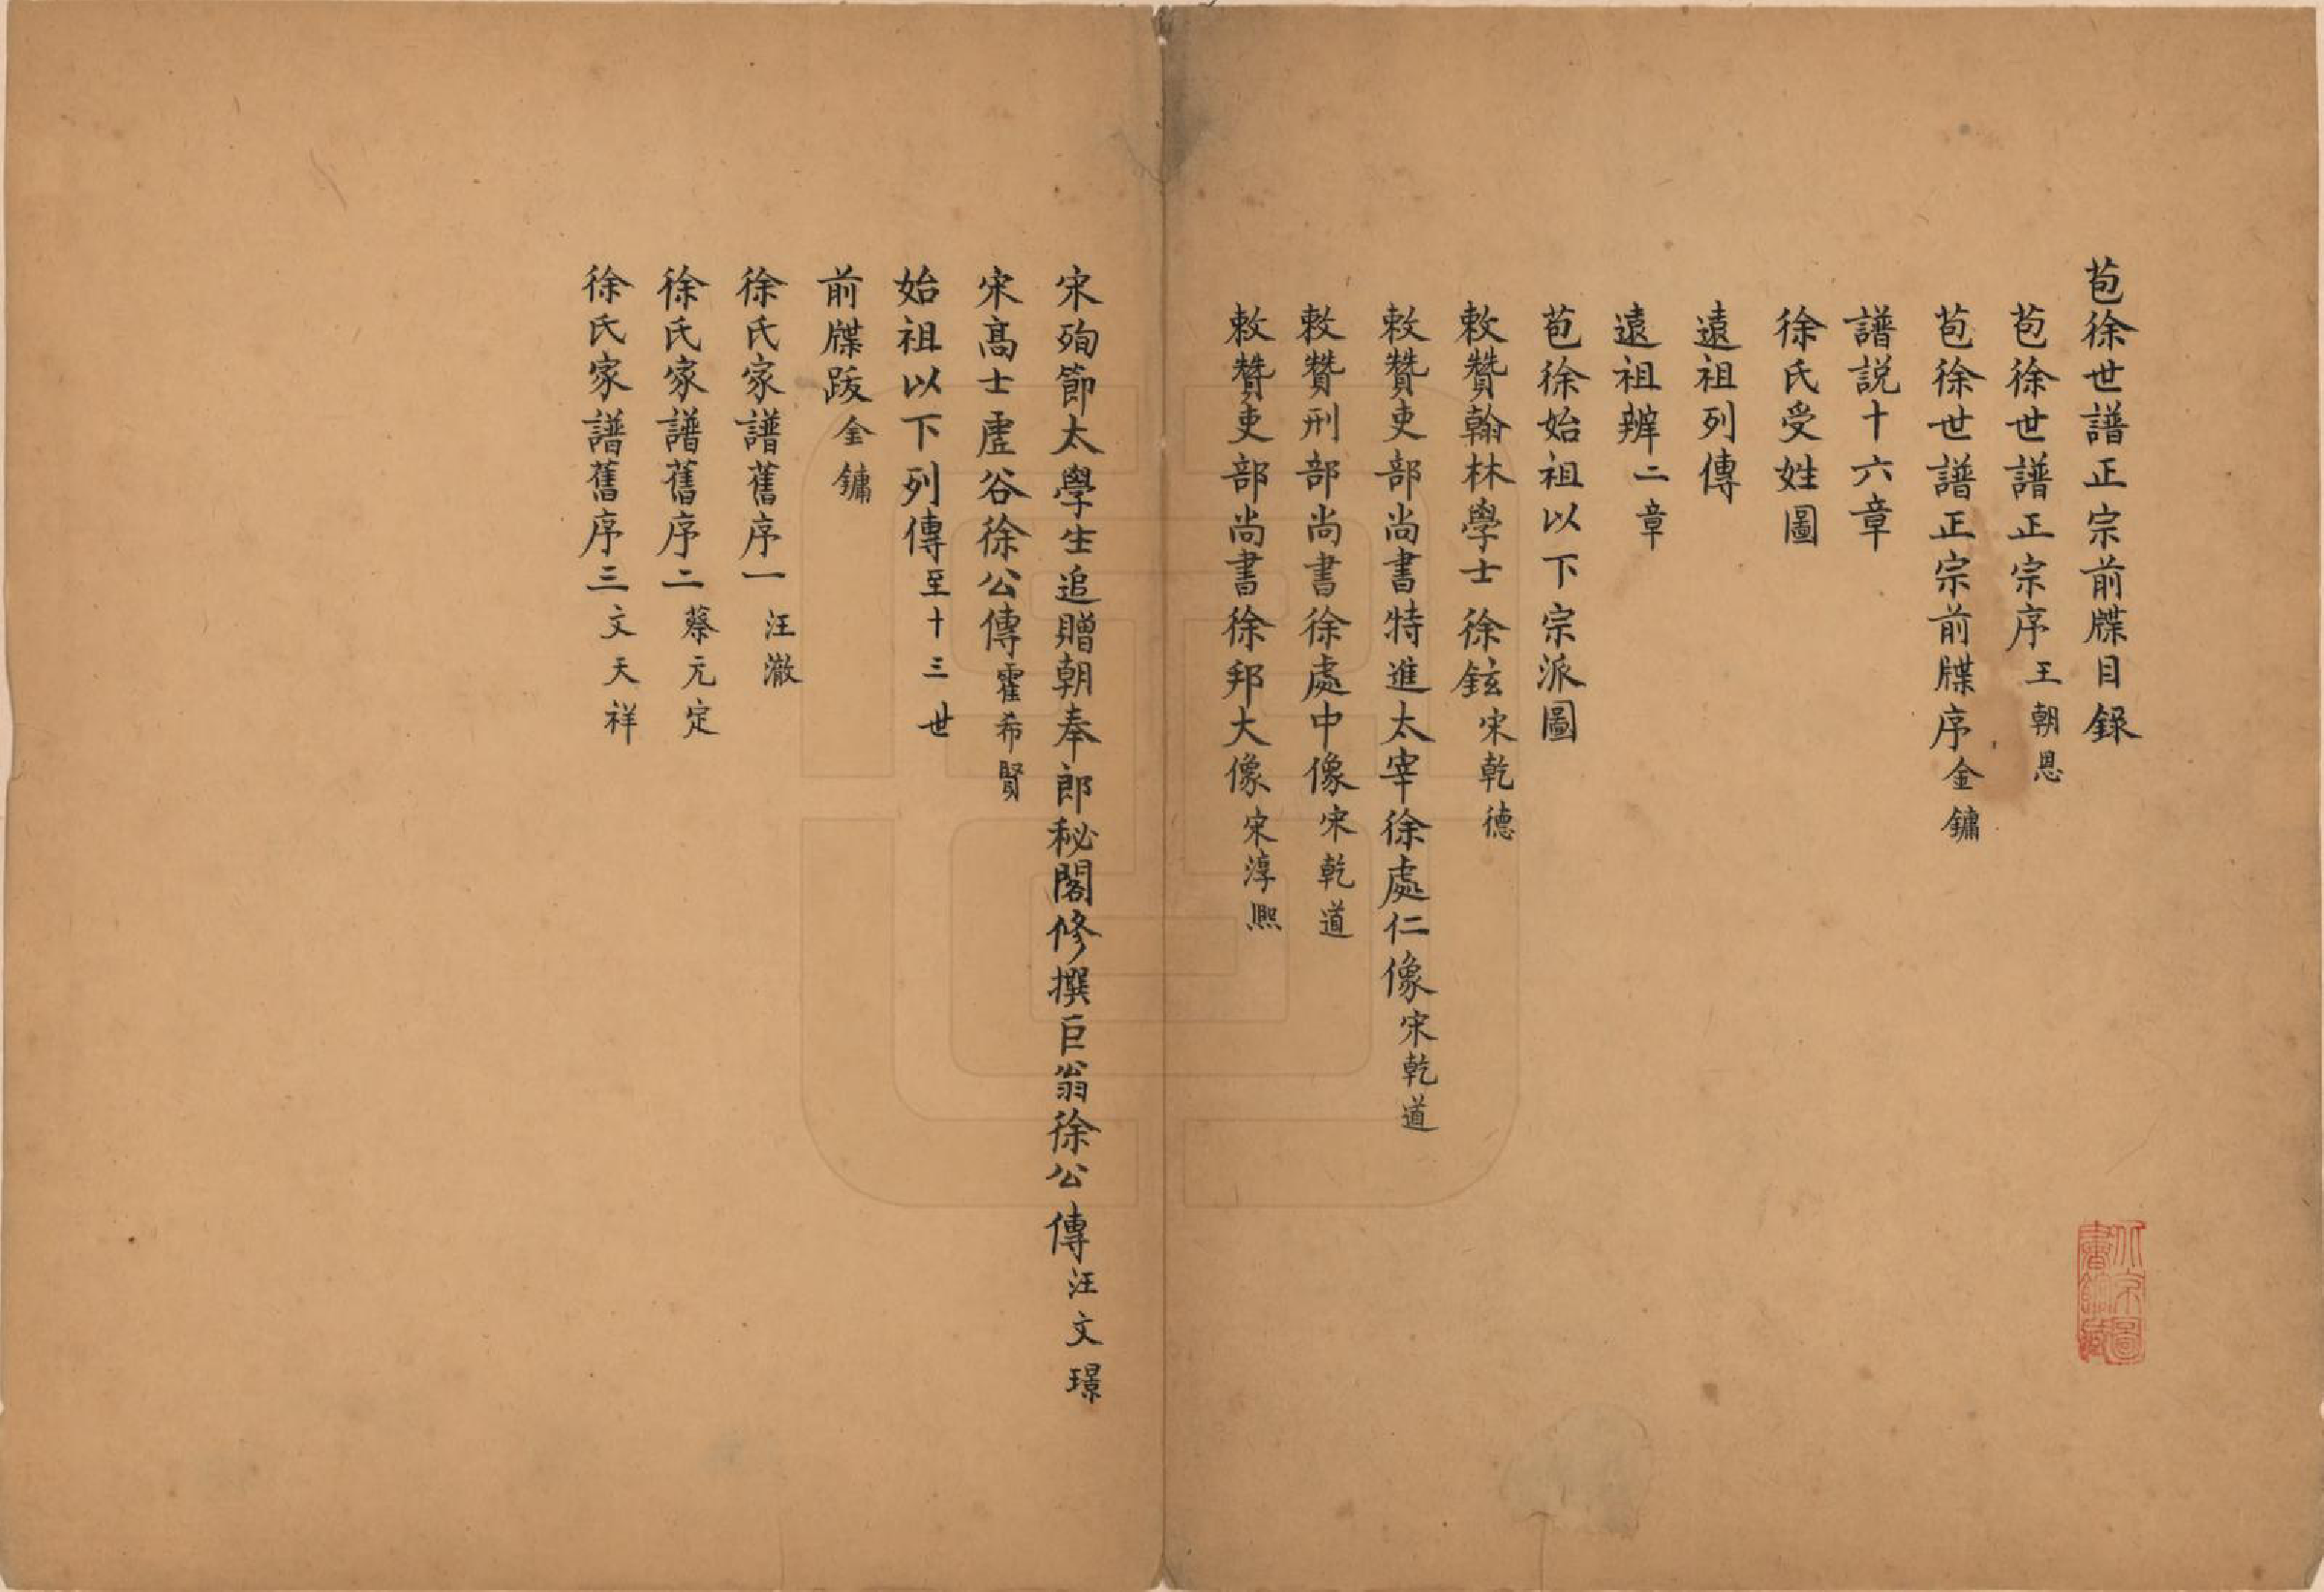 苞徐世譜正宗前牒目錄
苞徐世譜正宗序 王朝恩
苞徐世譜正宗前牒序 金鏞
譜説十六章
徐氏受姓圖
遠祖列傳
遠祖辨二章
苞徐始祖以下宗派圖
敕贊翰林學士徐鉉 宋乾德
敕贊吏部尚書特進太宰徐處仁像 宋乾道
敕贊刑部尚書徐處中像 宋乾道
敕贊吏部尚書徐邦大像 宋淳熙
宋殉節太學生追贈朝奉郎秘閣修撰巨翁徐公傳 汪文璟
宋高士虛谷徐公傳 霍希賢
始祖以下列傳 至十三世
前牒跋 金鏞
徐氏家譜舊序一 汪澈
徐氏家譜舊序二 蔡元定
徐氏家譜舊序三 文天祥
北京圖書館藏